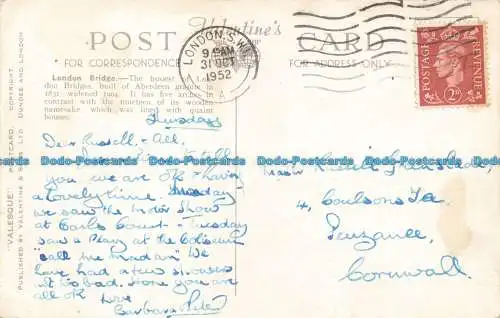 POST
Valentine's
CARD
FOR CORRESPONDENCE
FOR ADDRESS ONLY
LONDON, S.W.
9 AM
31 OCT
1952
POSTAGE
REVENUE
2D
London Bridge.—The busiest of Lon-
don Bridges, built of Aberdeen granite in
1831 widened 1904. It has five arches in
contrast with the nineteen of its wooden
namesake which was lined with quaint
houses.
"VALESQUE" POSTCARD. COPYRIGHT.
PUBLISHED BY VALENTINE & SONS LTD DUNDEE AND LONDON
Thursday
Dear Russell & All,
you we are OK & having
a lovely time. Monday
we saw the Motor Show
at Earls Court. Tuesday
saw a play at the Coliseum
"Call me Madam" We
have had a few showers
not to bad. Hope you are
all ok love
Barbara
Master Russell
4, Coulsons Tce
Penzance,
Cornwall.